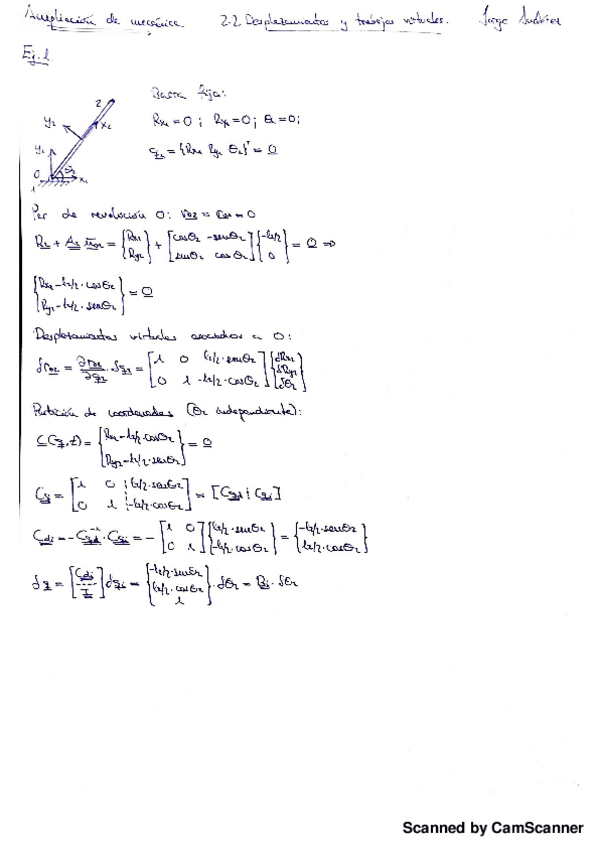 Ampliación de mecánica. 2.2 Desplazamientos y trabajos virtuales. Jorge
Ej. 1
Barra fija:
Rx₁ = 0 ; Ry₁ = 0 ; θ₁ = 0;
q₁ = {Rx₁ Ry₁ θ₁}ᵀ = 0
2
y₂
x₂
y₁
0
θ₂
x₁
1
Par de revolución 0: r₀₂ = r₀₁ = 0
R₂ + A₂ ū₀₂ = {Rx₂ Ry₂} + [cosθ₂ -senθ₂; senθ₂ cosθ₂] {-l₂/2; 0} = 0 ⇒
{Rx₂ - l₂/2·cosθ₂; Ry₂ - l₂/2·senθ₂} = 0
Desplazamientos virtuales asociados a 0:
δr₀₂ = ∂r₀₂/∂q₂ · δq₂ = [1 0 l₂/2·senθ₂; 0 1 -l₂/2·cosθ₂] {δRx₂; δRy₂; δθ₂}
Partición de coordenadas (θ₂ independiente):
C(q,t) = {Rx₂ - l₂/2·cosθ₂; Ry₂ - l₂/2·senθ₂} = 0
Cq = [1 0 l₂/2·senθ₂; 0 1 -l₂/2·cosθ₂] = [Cqd ¦ Cqi]
Cdi = -Cqd⁻¹·Cqi = -[1 0; 0 1] {l₂/2·senθ₂; -l₂/2·cosθ₂} = {-l₂/2·senθ₂; l₂/2·cosθ₂}
δq = [Cdi; I] δqi = {-l₂/2·senθ₂; l₂/2·cosθ₂; 1} · δθ₂ = Bi · δθ₂
Scanned by CamScanner